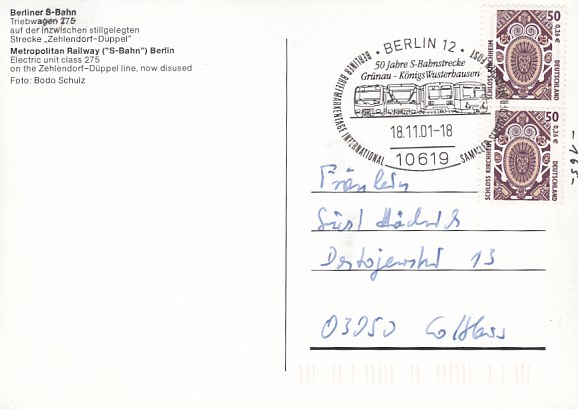 Berliner S-Bahn
Triebwagen 275
auf der inzwischen stillgelegten
Strecke „Zehlendorf-Düppel"
Metropolitan Railway ("S-Bahn") Berlin
Electric unit class 275
on the Zehlendorf-Düppel line, now disused
Foto: Bodo Schulz
· BERLIN 12 ·
50 Jahre S-Bahnstrecke
Grünau - KönigsWusterhausen
18.11.01-18
10619
BERLINER BRIEFMARKENTAGE INTERNATIONAL
SAMMLER
POST
50
0,26 €
SCHLOSS KIRCHHEIM
DEUTSCHLAND
50
0,26 €
SCHLOSS KIRCHHEIM
DEUTSCHLAND
Fräulein
13
03050 Cottbus